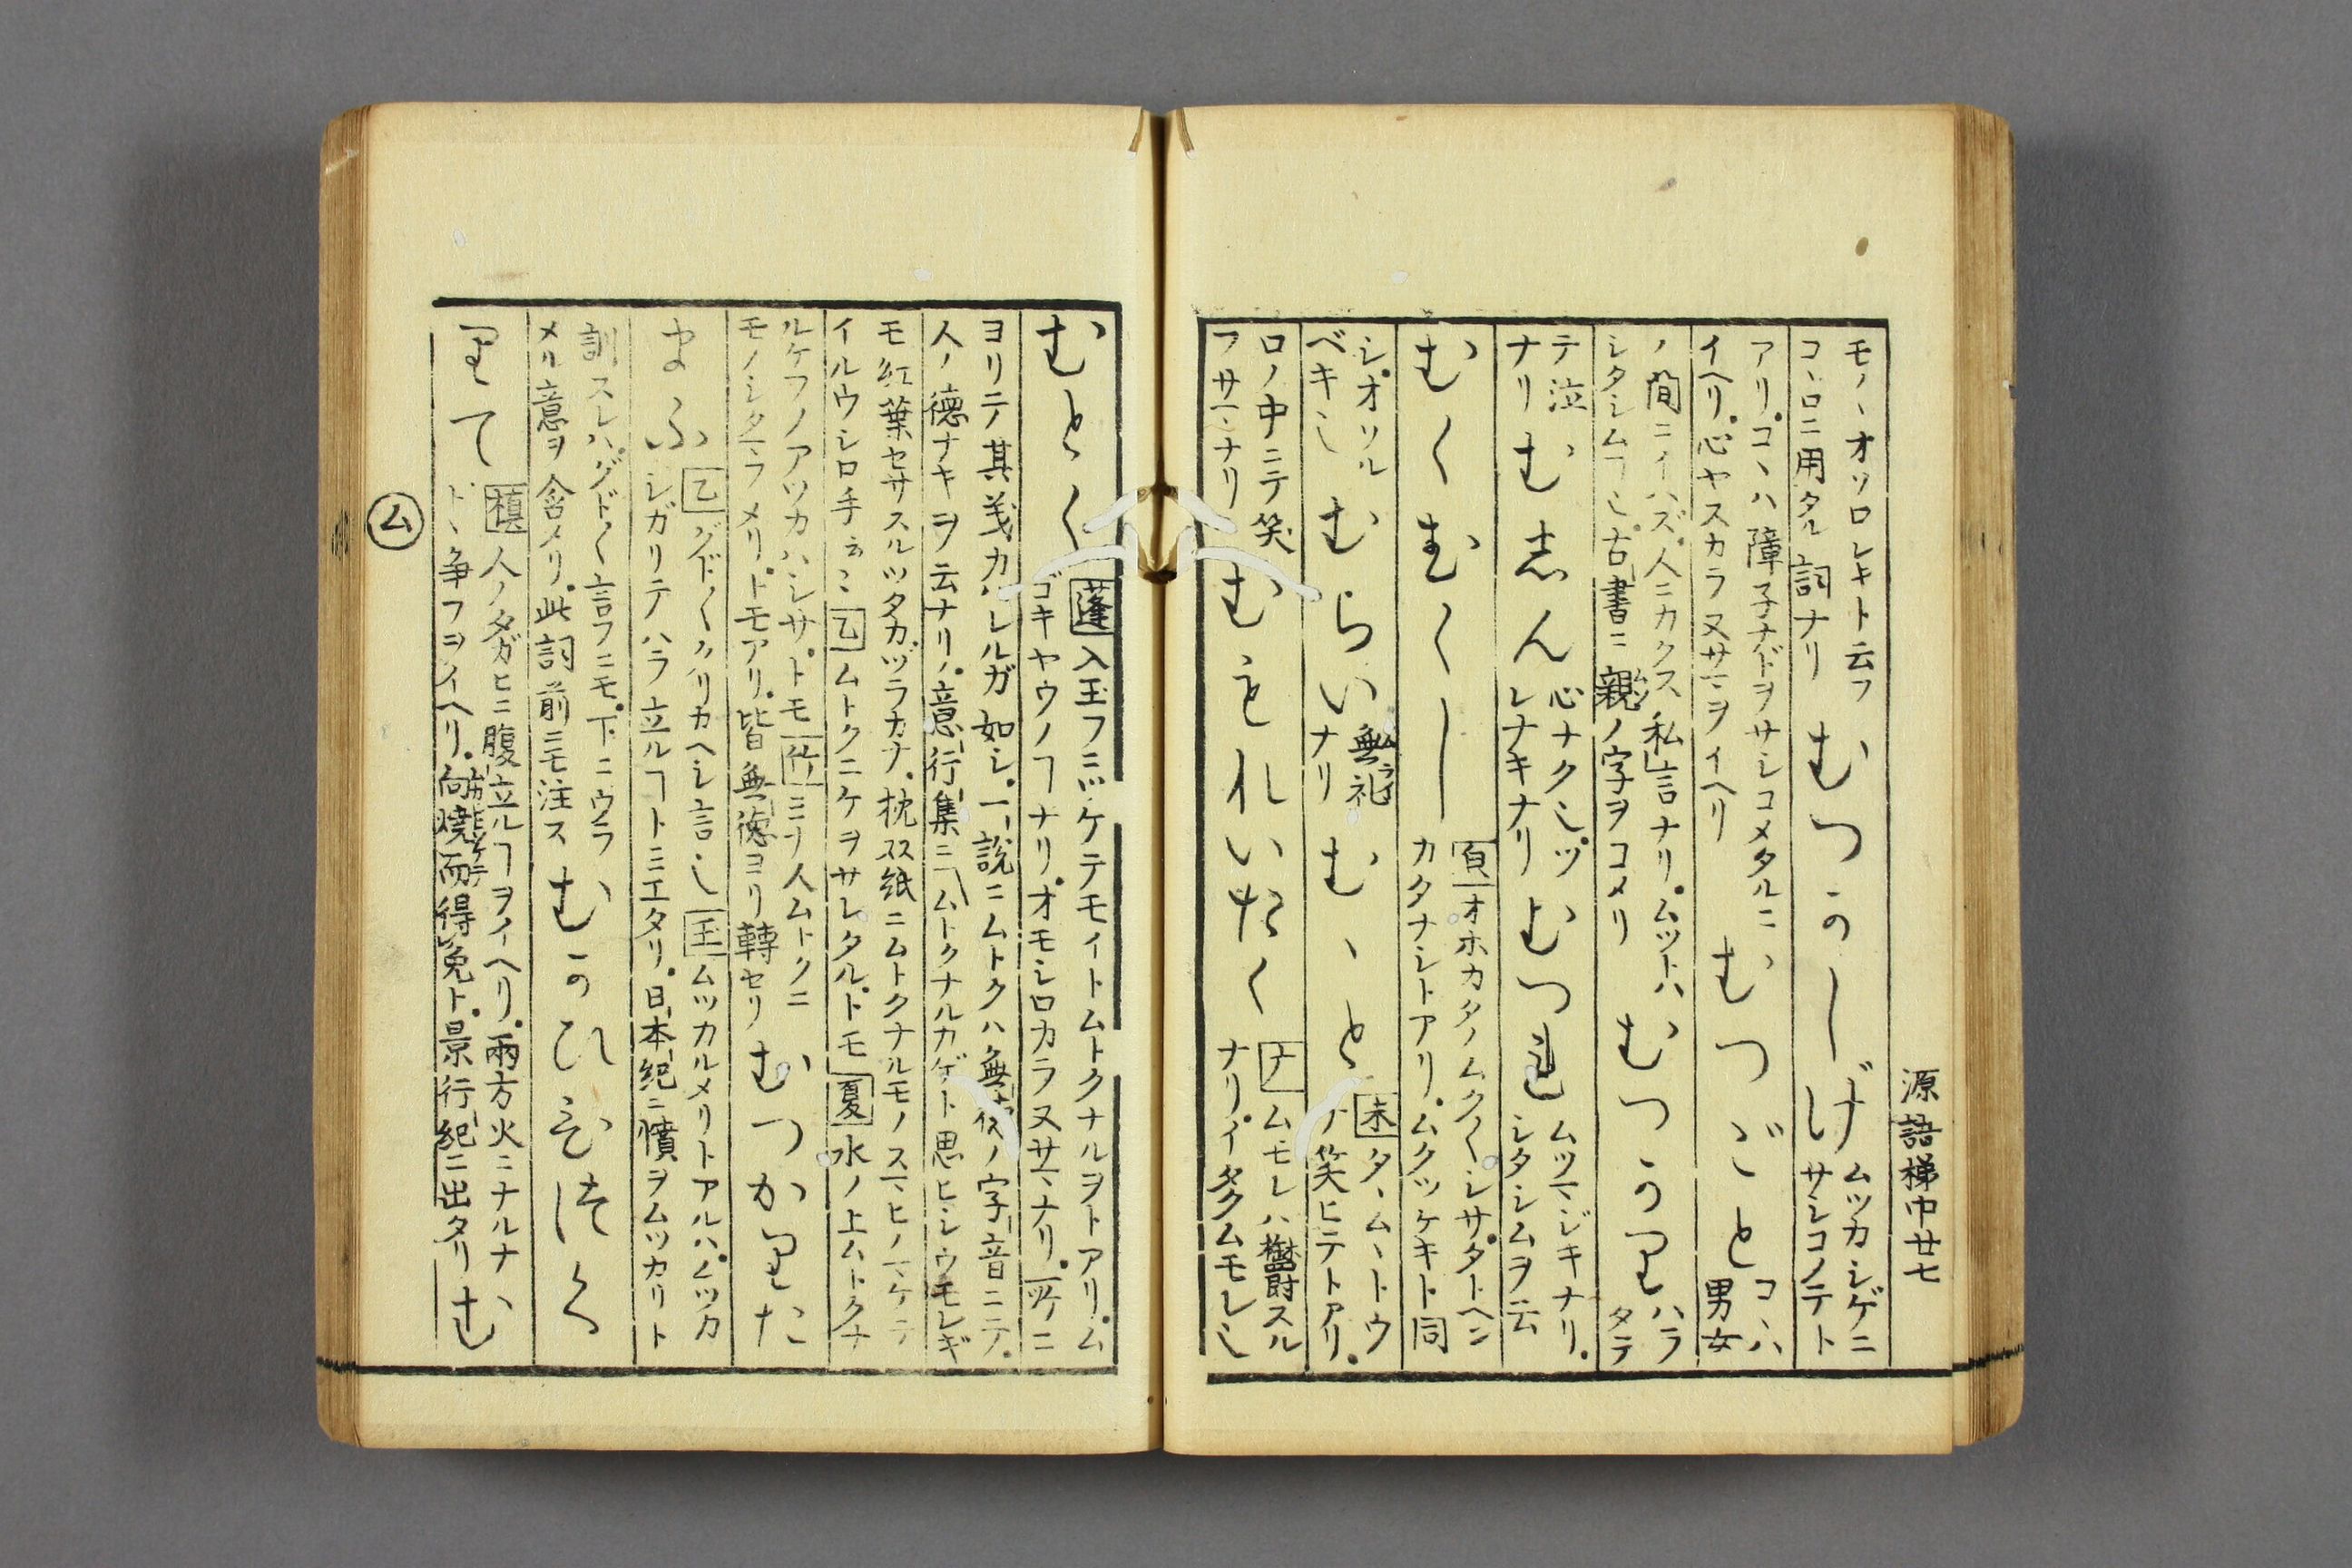 源語梯中廿七
モノヽオソロシキト云フ
コヽロニ用タル詞ナリ
むつかしげ
ムツカシゲニ
サシコメテト
アリ。コヽハ障子ナドヲサシコメタルニ
イヘリ。心ヤスカラヌサマヲイヘリ
むつごと
コヽハ
男女
ノ間ニイハズ。人ニカクス私言ナリ。ムツトハ
シタシムヿ也。古書ニ親ノ字ヲコメリ
むつかり
ハラ
タテ
テ泣
ナリ
むしん
心ナク也。ツ
レナキナリ
むつれ
ムツマジキナリ。
シタシムヲ云
むくむくし
頁オホカタノムク〱シサ。タトヘン
カタナシトアリ。ムクツケキト同
シ。オソル
ベキ也
むらい
無礼
ナリ
むゝと
末タヽムヽトウ
チ笑ヒテトアリ。
口ノ中ニテ笑
フサマナリ
むもれいたく
ナムモレハ欝尉スル
ナリ。イタクムモレ也
むとく
蓬入玉フニツケテモイトムトクナルヲトアリ。ム
ゴキヤウノヿナリ。オモシロカラヌサマナリ。所ニ
ヨリテ其義カハレルガ如シ。一説ニムトクハ無徳ノ字音ニテ。
人ノ徳ナキヲ云ナリ。意行集ニムトクナルカゲト思ヒシウモレギ
モ紅葉セサスルツタカヅラカナ。枕双紙ニムトクナルモノスマヒノマケテ
イルウシロ手云々
乙ムトクニケヲサレタル。トモ
夏水ノ上ムトクナ
ルケフノアツカハシサ。トモ
竹ミヨリ人ムトクニ
モノシタマフメリ。トモアリ。皆無徳ヨリ轉セリ
むつかりたまふ
乙グド〱クリカヘシ言也
玉ムツカルメリトアルハ。ムツカ
シガリテハラ立ルヿトミエタリ。日本紀ニ憤ヲムツカリト
訓スレハ。グド〱言フニモ。下ニウラ
メル意ヲ含メリ。此詞前ニモ注ス
むかひひつくりて
槙人ノタガヒニ腹立ルヿヲイヘリ。兩方火ニナルナ
ドヽ争フヲイヘリ。向燒而得免ト。景行紀ニ出タリ
む
ム